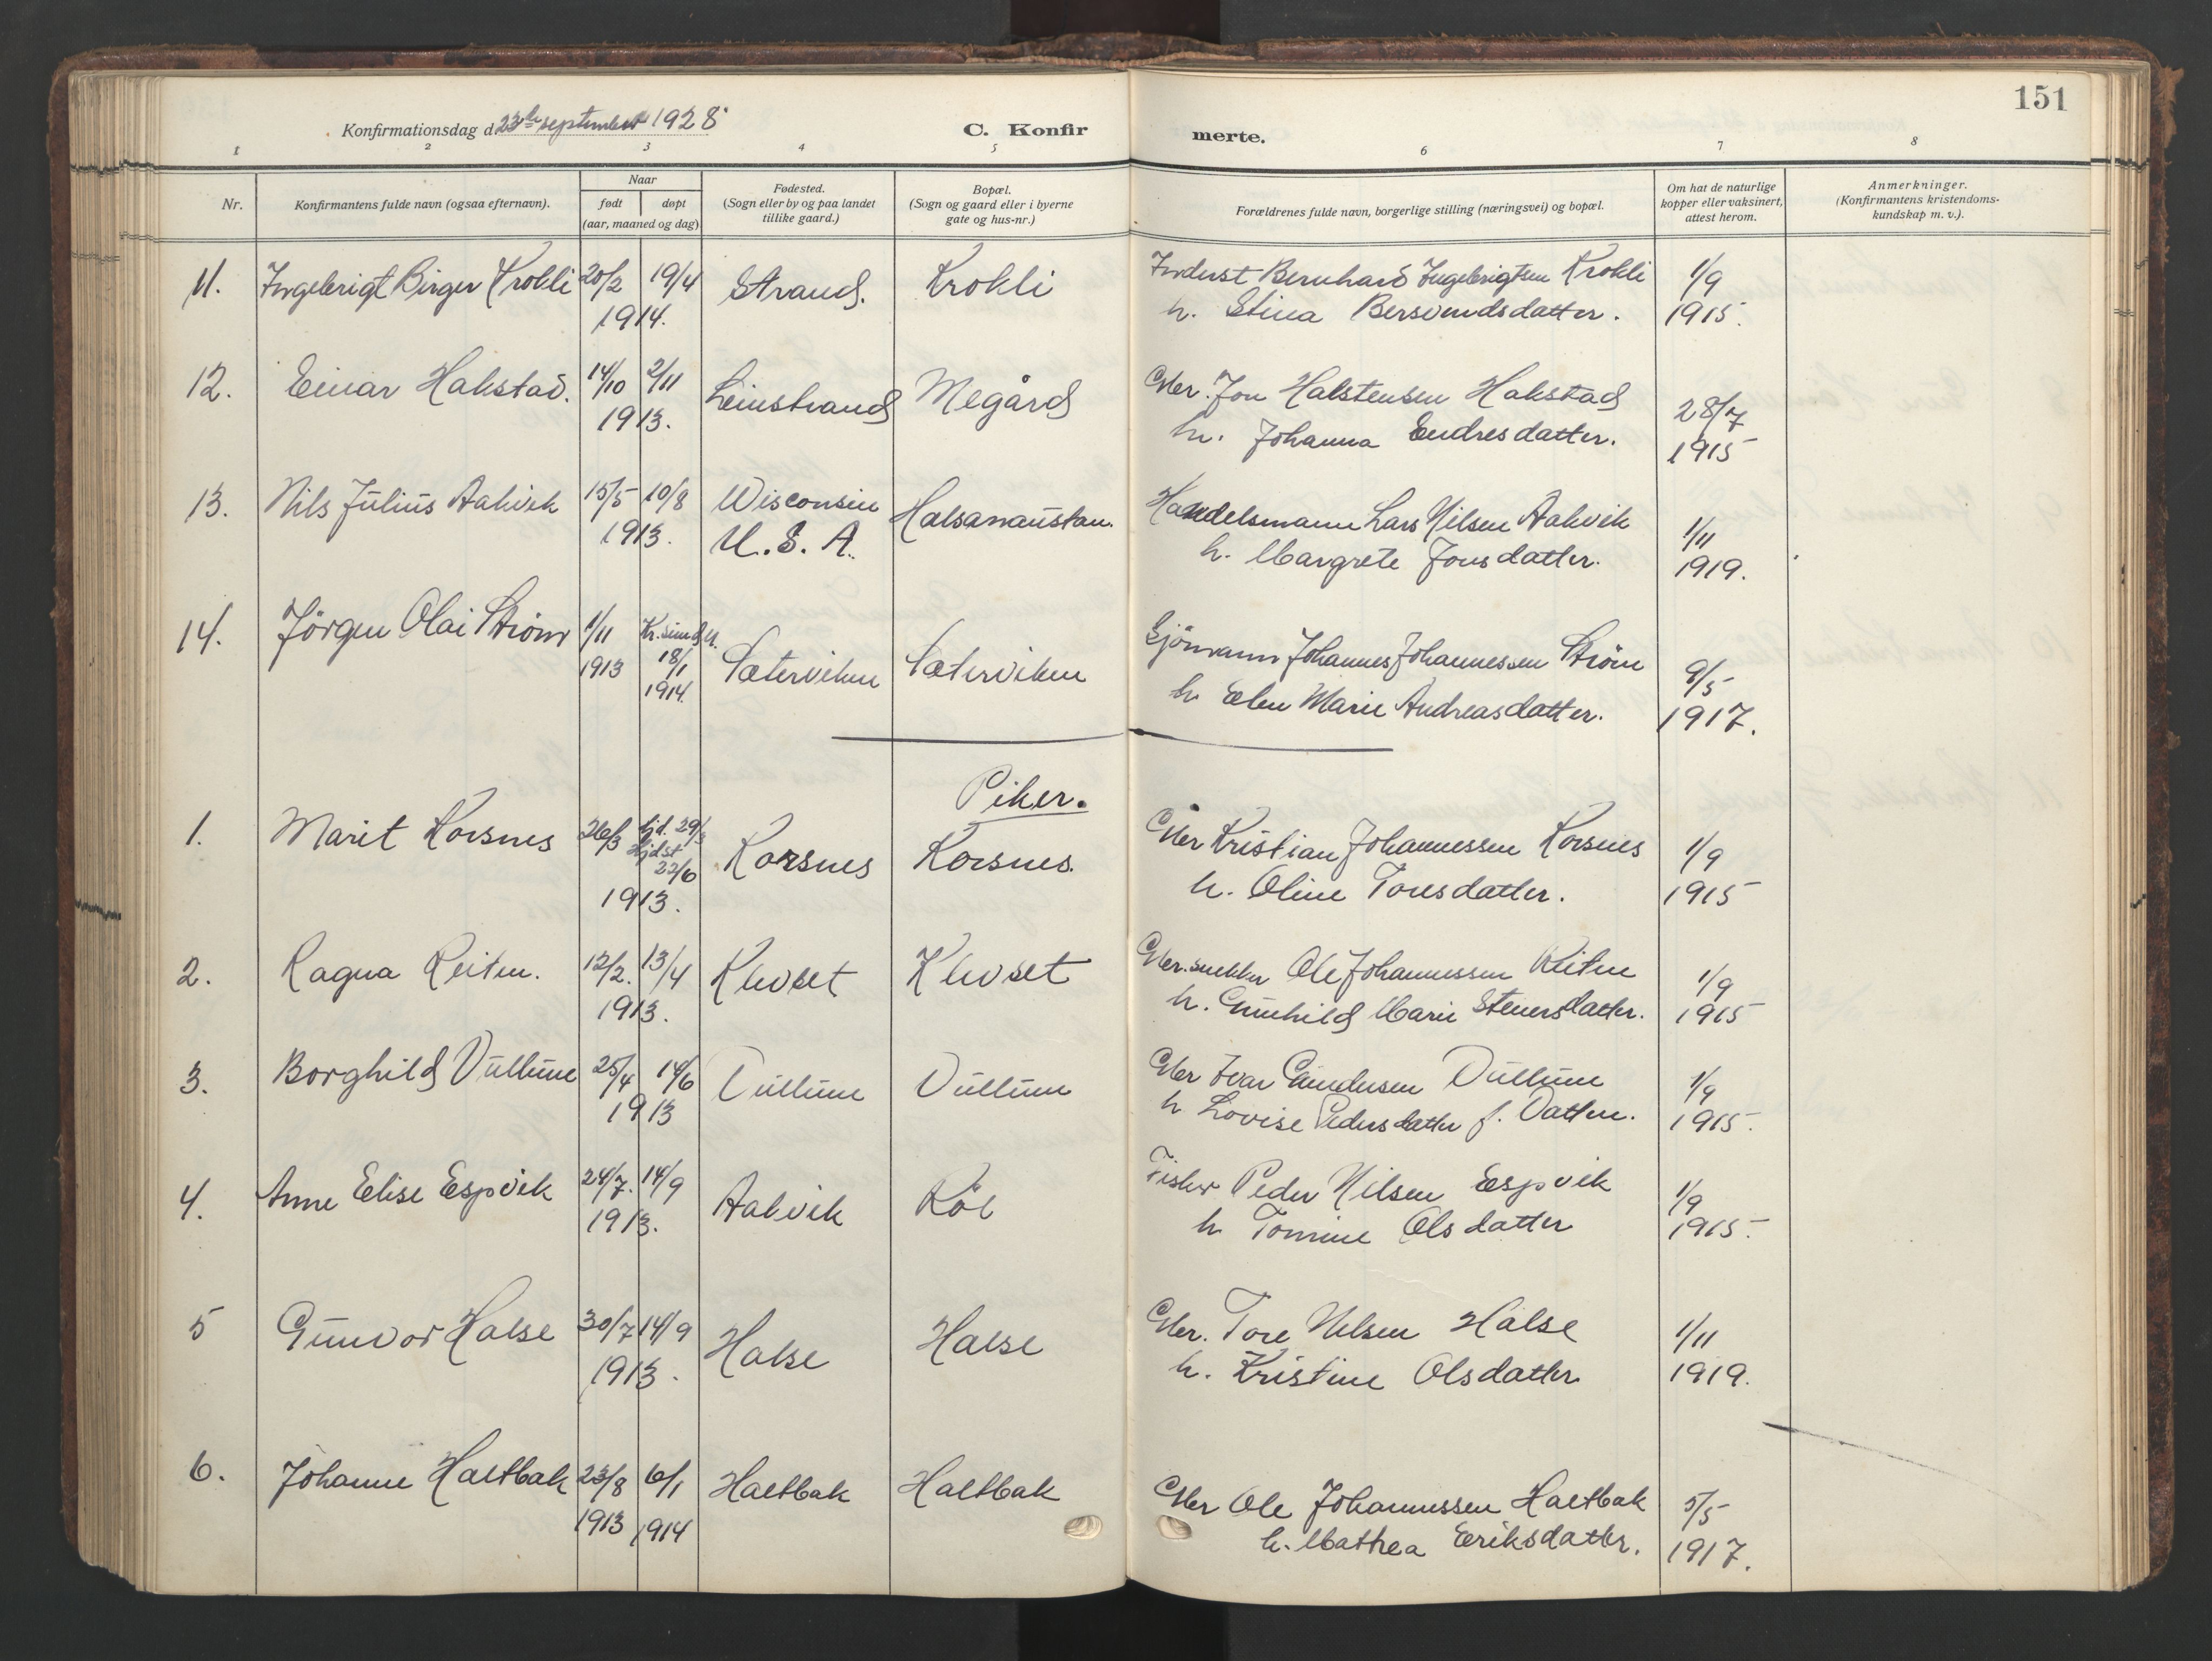 151
Konfirmationsdag d. 23de september 1928.
C. Konfirmerte.
1 2 3 4 5 6 7 8
Nr.
Konfirmantens fulde navn (ogsaa efternavn).
Naar
født døpt
(aar, maaned og dag)
Fødested.
(Sogn eller by og paa landet
tillike gaard.)
Bopæl.
(Sogn og gaard eller i byerne
gate og hus-nr.)
Forældrenes fulde navn, borgerlige stilling (næringsvei) og bopæl.
Om hat de naturlige
kopper eller vaksinert,
attest herom.
Anmerkninger.
(Konfirmantens kristendoms-
kundskap m. v.).
11. Ingebrigt Birger Krokli 20/2 19/4 Strand. Krokli Inderst Bernhard Ingebrigtsen Krokli 1/9
1914. h. Stina Bersvendsdatter. 1915.
12. Einar Hakstad. 14/10 2/11 Leinstrand Megård Gbr. Jon Halstensen Hakstad 28/7
1913. h. Johanna Endresdatter. 1915
13. Nils Julius Aakvik 15/5 10/8 Wisconsin Halsanaustan. Handelsmann Lars Nilsen Aakvik 1/11
1913. U.S.A. h. Margrete Jonsdatter. 1919.
14. Jörgen Olai Ström 1/11 Kr.sund N. Sæterviken Sæterviken Sjömann Johannes Johannessen Ström 9/5
1913 18/1
1914. h. Elen Marie Andreasdatter. 1917.
Piker.
1. Marit Korsnes 26/3 hjd. 29/3 Korsnes Korsnes. Gbr Kristian Johannessen Korsnes 1/9
22/6
1913. h. Oline Toresdatter. 1915
2. Ragna Reiten. 12/2. 13/4 Klevset Klevset Gbr. snekker Ole Johannessen Reiten 1/9
1913. h. Gunhild Marie Stenersdatter. 1915
3. Borghild Vullum 25/4 14/6 Vullum Vullum Gbr Ivar Gundersen Vullum 1/9
1913 h Lovise Pedersdatter f. Vatten. 1915.
4. Anne Elise Espvik 24/7. 14/9 Aakvik Köl Fisker Peder Nilsen Espvik 1/9
1913. h. Tomine Olsdatter 1915.
5 Gunvor Halse 30/7 14/9 Halse Halse Gbr. Tore Nilsen Halse 1/11
1913. h. Kristine Olsdatter 1919.
6. Johanne Haltbak 23/8 6/1 Haltbak Haltbak Gbr Ole Johannessen Haltbak 5/5
1913 1914 h. Mathea Eriksdatter. 1917.